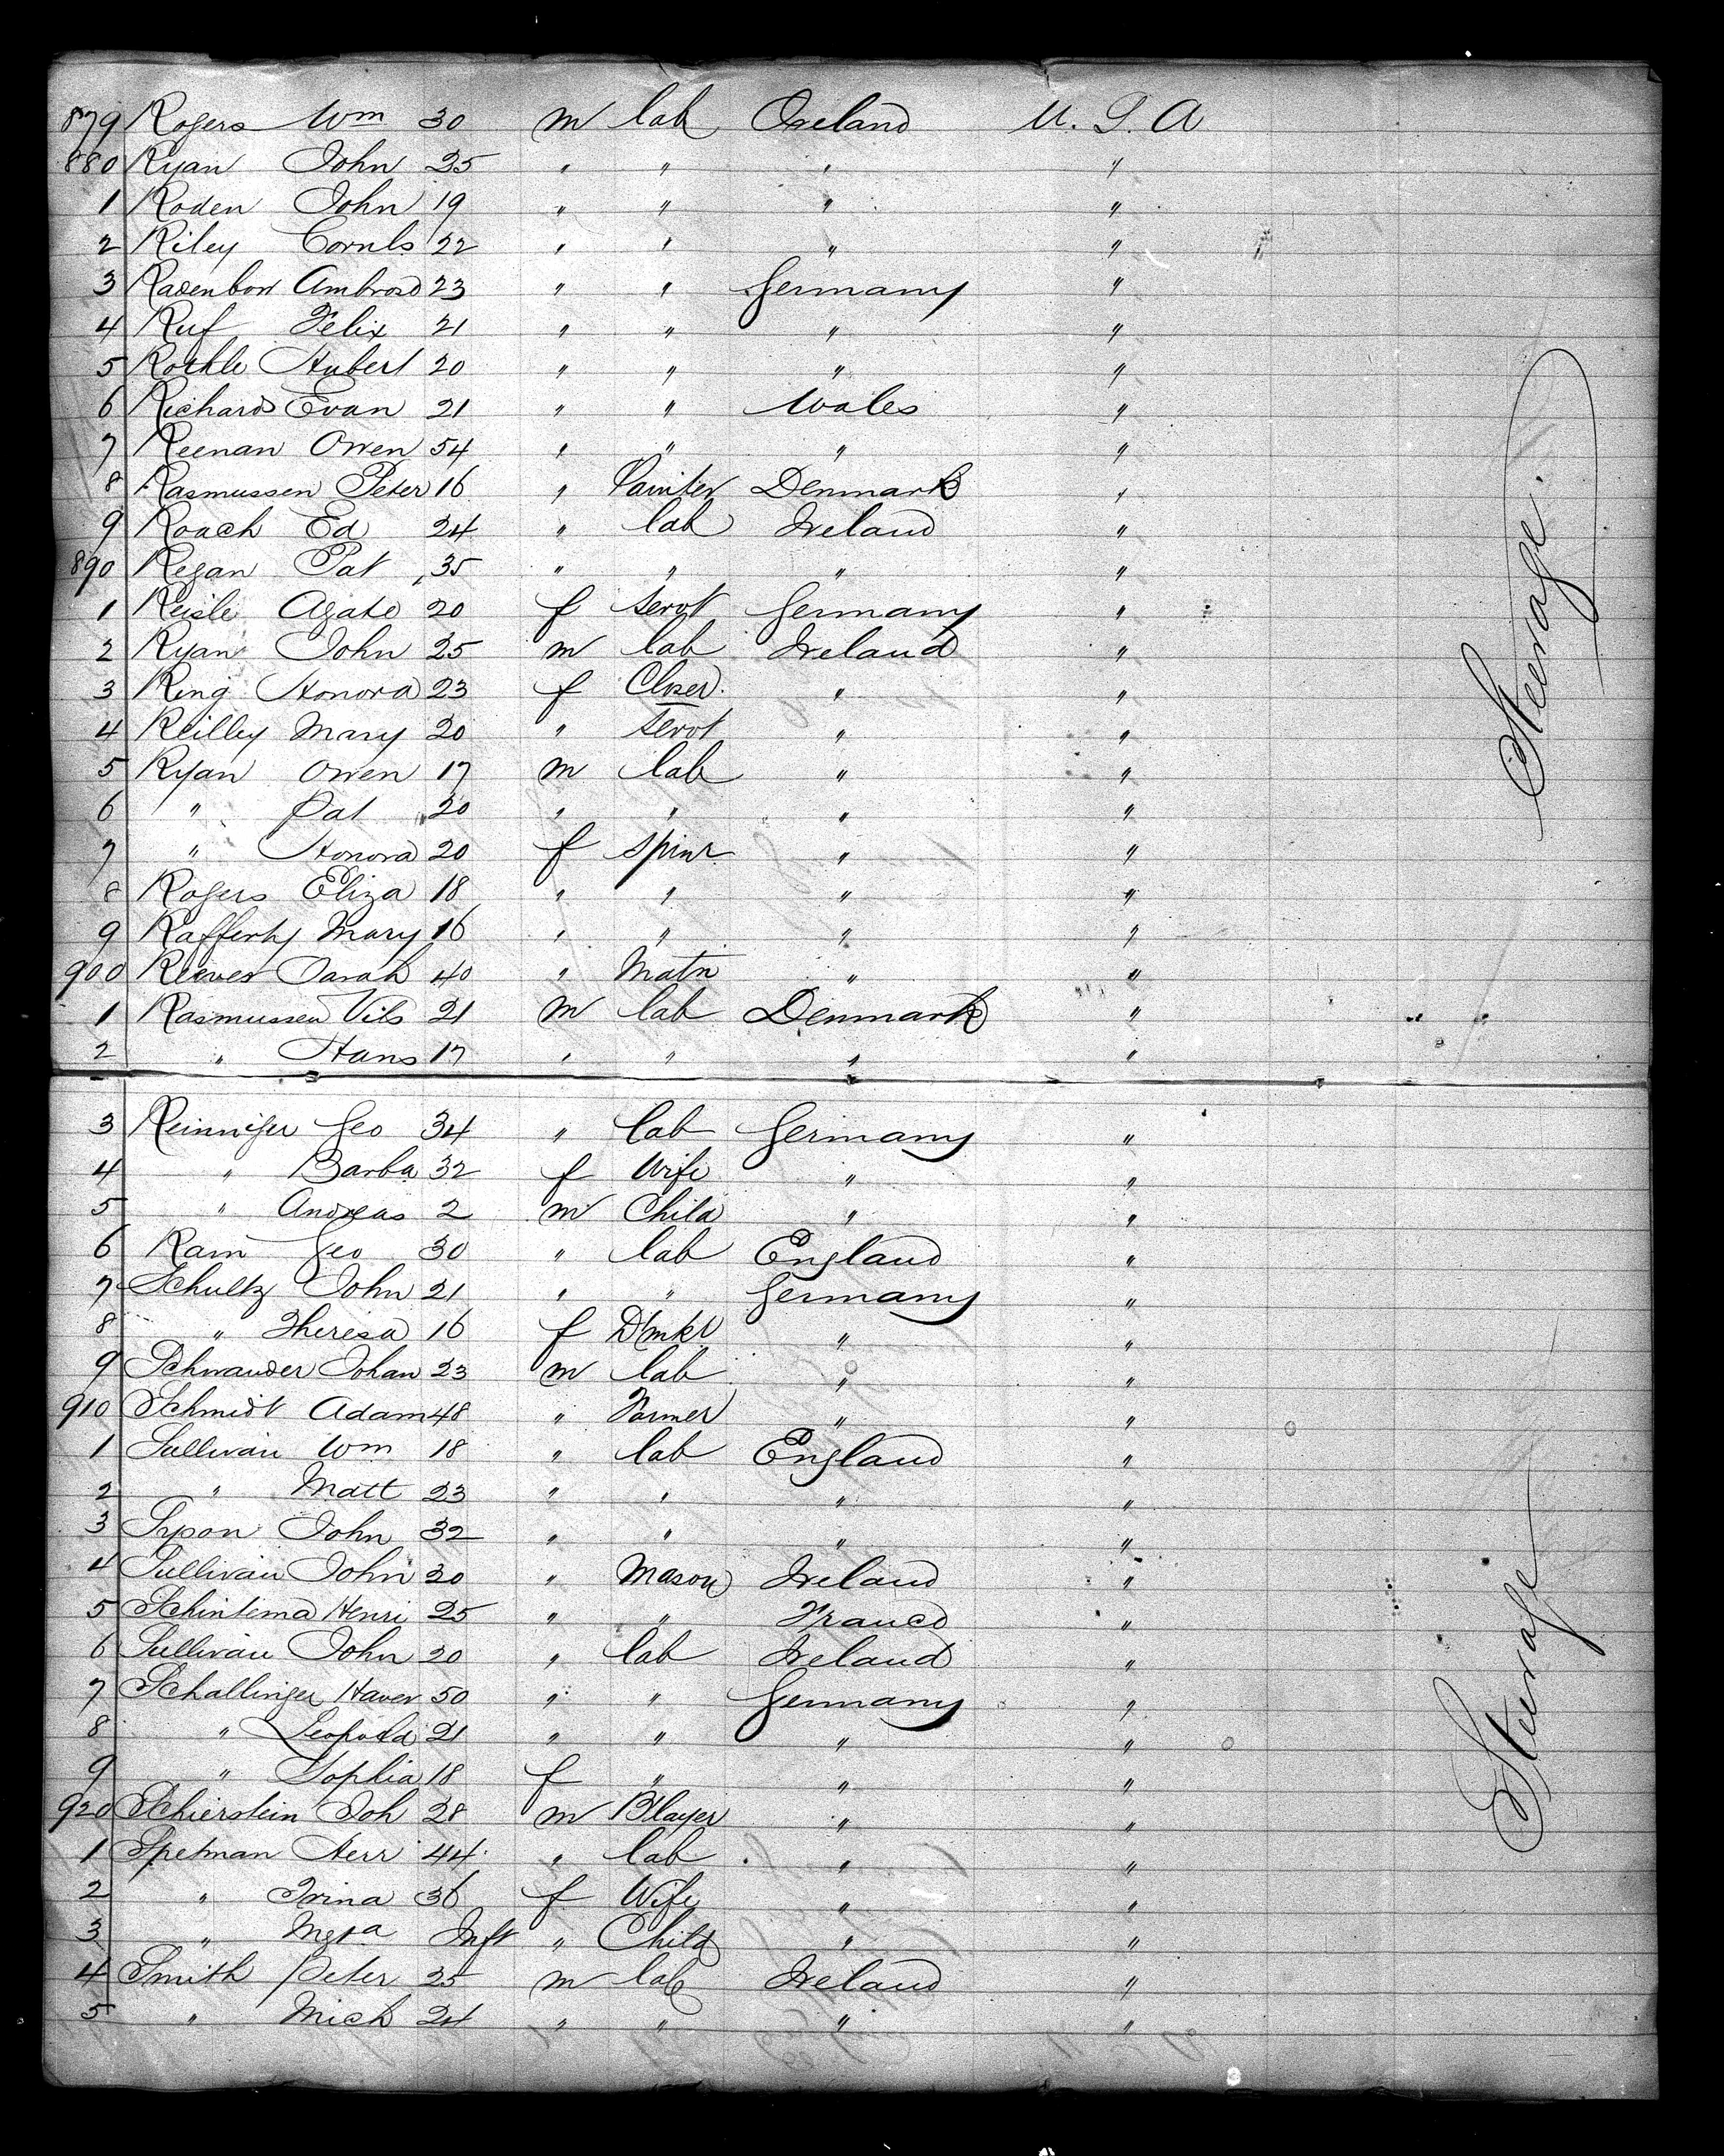 879 Rogers Wm 30 m lab Ireland U. S. A
880 Ryan John 25 " " " "
1 Roden John 19 " " " "
2 Riley Cornls 22 " " " "
3 Ambrose 23 " " Germany "
4 Ruf Felix 21 " " " "
5 Rothle Hubert 20 " " " "
6 Richards Evan 21 " " Wales "
7 Keenan Owen 54 " " " "
8 Rasmussen Peter 16 " Painter Denmark "
9 Roach Ed 24 " lab Ireland "
890 Regan Pat 35 " " " "
1 Reisle Agate 20 f servt Germany "
2 Ryan John 25 m lab Ireland "
3 Ring Honora 23 f Closer " "
4 Reilley Mary 20 " servt " "
5 Ryan Owen 17 m lab " "
6 " Pat 20 " " " "
7 " Honora 20 f spinr " "
8 Rogers Eliza 18 " " " "
9 Rafferty Mary 16 " " " "
900 Reeves Sarah 40 " Matn " "
1 Rasmussen Nils 21 m lab Denmark "
2 " Hans 17 " " " "
3 Reinniger Geo 34 " lab Germany "
4 " Barba 32 f Wife " "
5 " Andreas 2 m Child " "
6 Ram Geo 30 " lab England "
7 Schultz John 21 " " Germany "
8 " Theresa 16 f Dmkr " "
9 Schwander Johan 23 m lab " "
910 Schmidt Adam 48 " Farmer " "
1 Sullivan Wm 18 " lab England "
2 " Matt 23 " " " "
3 Syson John 32 " " " "
4 Sullivan John 30 " Mason Ireland "
5 Schintema Henri 25 " " France "
6 Sullivan John 20 " lab Ireland "
7 Schallinger Xaver 50 " " Germany "
8 " Leopold 21 " " " "
9 " Sophia 18 f " " "
920 Schierstein Joh 28 m Blayer " "
1 Spetman Herr 44 " lab " "
2 " Irina 36 f Wife " "
3 " Meta Inft " Child " "
4 Smith Peter 25 m lab Ireland "
5 " Mich 24 " " " "
Steerage.
Steerage